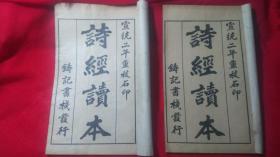 宣統二年重校石印
詩經讀本
鑄記書棧發行
宣統二年重校石印
詩經讀本
鑄記書棧發行